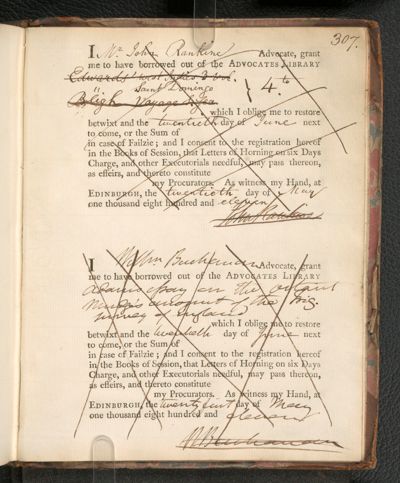 307.
I Mr. John Rankine Advocate, grant
me to have borrowed out of the ADVOCATES LIBRARY
Edwards' West Indies 3 vol.
" Saint Domingo } 4.to
Bligh Voyage S. Sea
, which I oblige me to restore
betwixt and the twentieth day of June next
to come, or the Sum of
in case of Failzie; and I consent to the registration hereof
in the Books of Session, that Letters of Horning on six Days
Charge, and other Executorials needful, may pass thereon,
as effeirs, and thereto constitute
my Procurators. As witness my Hand, at
EDINBURGH, the twentieth day of May
one thousand eight hundred and eleven
John Rankine
I Wm. Buchanan Advocate, grant
me to have borrowed out of the ADVOCATES LIBRARY
essay on the
account of the trig.
survey of England
, which I oblige me to restore
betwixt and the twentieth day of June next
to come, or the Sum of
in case of Failzie; and I consent to the registration hereof
in the Books of Session, that Letters of Horning on six Days
Charge, and other Executorials needful, may pass thereon,
as effeirs, and thereto constitute
my Procurators. As witness my Hand, at
EDINBURGH, the twenty first day of May
one thousand eight hundred and eleven
W Buchanan